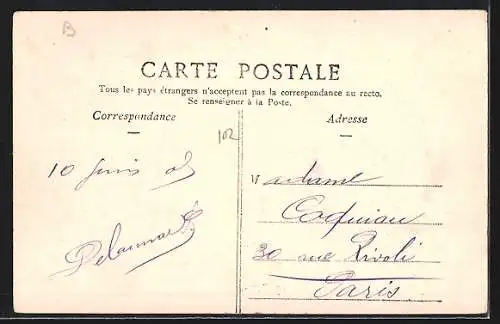 B
CARTE POSTALE
Tous les pays étrangers n'acceptent pas la correspondance au recto.
Se renseigner à la Poste.
Correspondance
Adresse
102
10 juin 05
Madame
Coquiau
30 rue Rivoli
Paris